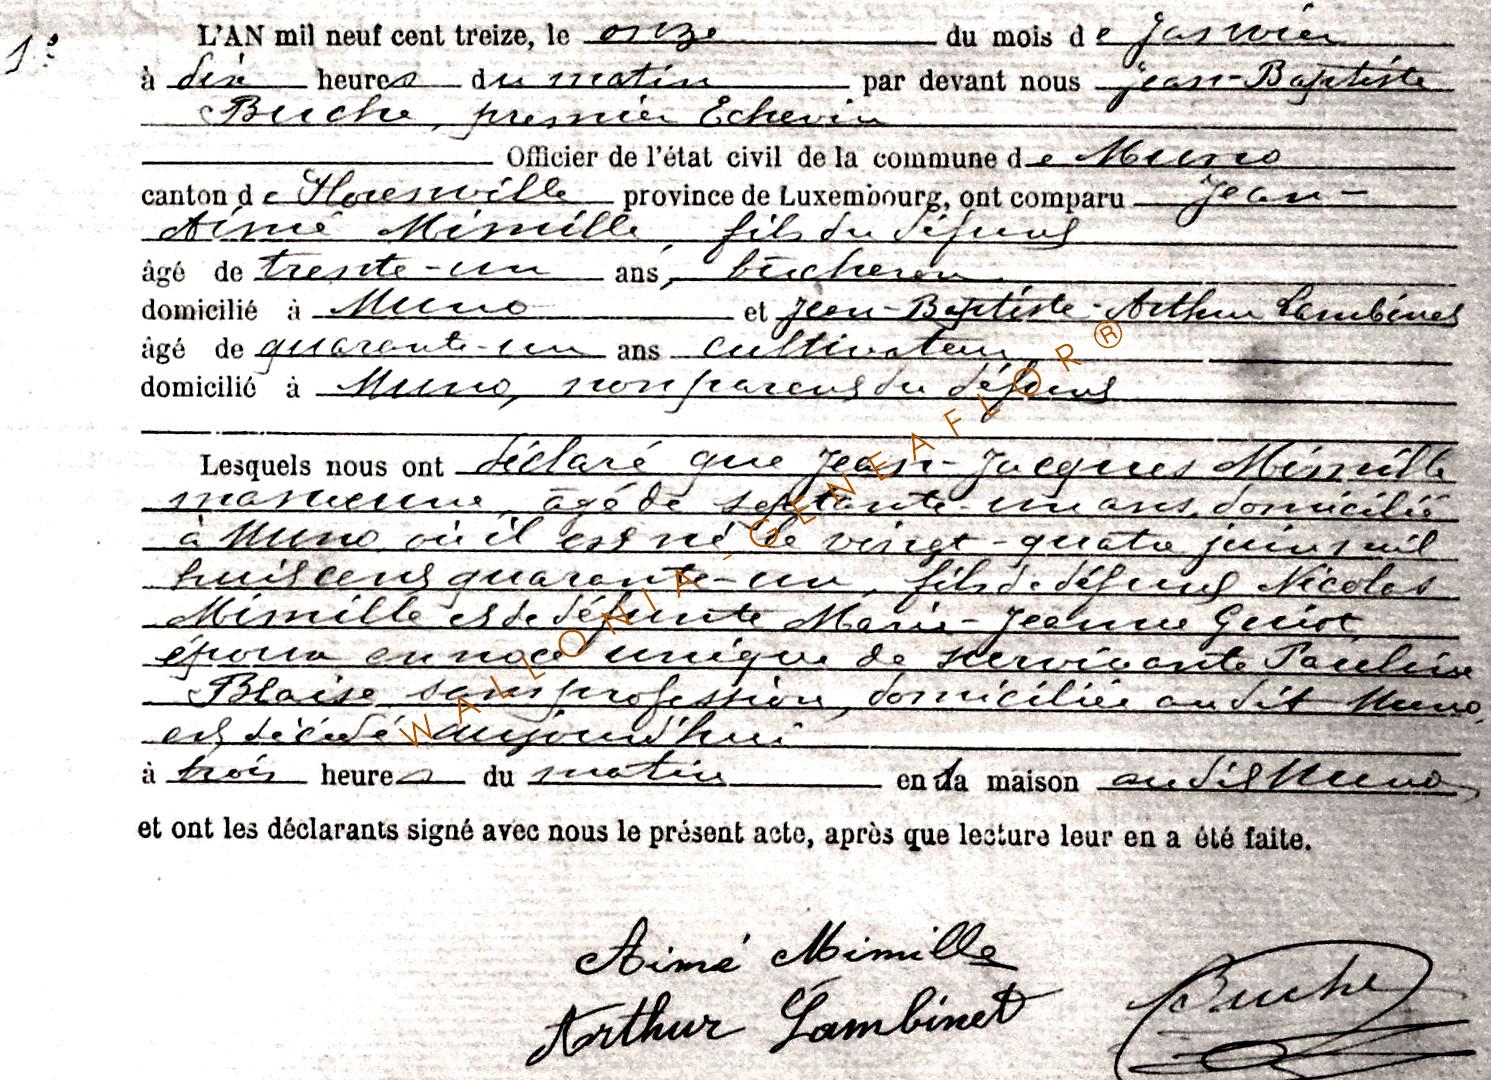 1º
L'AN mil neuf cent treize, le onze du mois de Janvier
à dix heures du matin par devant nous Jean-Baptiste
Buche, premier Echevin
Officier de l'état civil de la commune de Muno
canton de Florenville province de Luxembourg, ont comparu Jean-
Aimé Mimille, fils du défunt
âgé de trente-un ans, bûcheron
domicilié à Muno et Jean-Baptiste-Arthur Lambinet
âgé de quarante-un ans cultivateur
domicilié à Muno, non parent du défunt
Lesquels nous ont déclaré que Jean-Jacques Mimille
manœuvre, âgé de septante-un ans, domicilié
à Muno où il est né le vingt-quatre juin mil
huit cent quarante-un, fils de défunt Nicolas
Mimille et de défunte Marie-Jeanne Guiot,
époux en noce unique de survivante Pauline
Blaise sans profession, domiciliée au dit Muno,
est décédé aujourd'hui
à trois heures du matin en sa maison au dit Muno,
et ont les déclarants signé avec nous le présent acte, après que lecture leur en a été faite.
Aimé Mimille
Arthur Lambinet
Buche
WALLONIA - GENEAFLOR ®